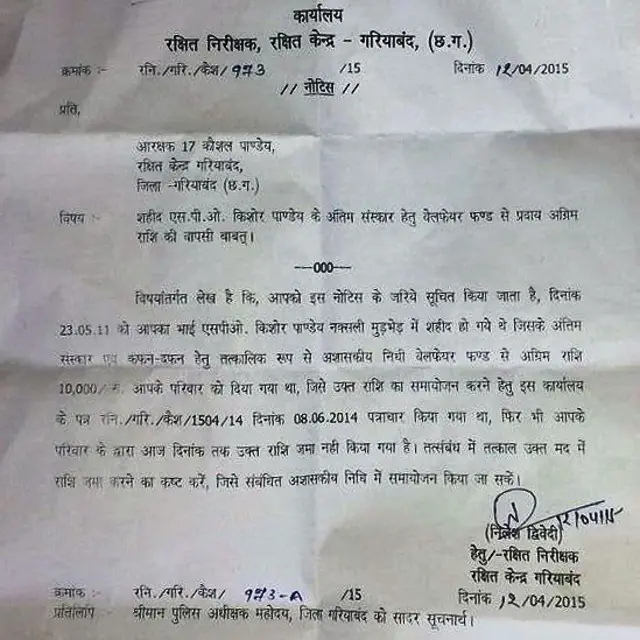 कार्यालय
रक्षित निरीक्षक, रक्षित केन्द्र – गरियाबंद, (छ.ग.)
क्रमांक :- रनि./गरि./कैश/ 973 /15 दिनांक 12/04/2015
// नोटिस //
प्रति,
आरक्षक 17 कौशल पाण्डेय,
रक्षित केन्द्र गरियाबंद,
जिला -गरियाबंद (छ.ग.)
विषय :- शहीद एस.पी.ओ. किशोर पाण्डेय के अंतिम संस्कार हेतु वेलफेयर फण्ड से प्रदाय अग्रिम
राशि की वापसी बाबत्।
---000---
विषयांतर्गत लेख है कि, आपको इस नोटिस के जरिये सूचित किया जाता है, दिनांक
23.05.11 को आपका भाई एसपीओ. किशोर पाण्डेय नक्सली मुड़भेड़ में शहीद हो गये थे जिसके अंतिम
संस्कार एवं कफन-दफन हेतु तत्कालिक रूप से अशासकीय निधी वेलफेयर फण्ड से अग्रिम राशि
10,000/- रू. आपके परिवार को दिया गया था, जिसे उक्त राशि का समायोजन करने हेतु इस कार्यालय
के पत्र रनि./गरि./कैश/1504/14 दिनांक 08.06.2014 पत्राचार किया गया था, फिर भी आपके
परिवार के द्वारा आज दिनांक तक उक्त राशि जमा नही किया गया है। तत्संबंध में तत्काल उक्त मद में
राशि जमा करने का कष्ट करें, जिसे संबंधित अशासकीय निधि में समायोजन किया जा सकें।
12/04/15
(निलेश द्विवेदी)
हेतु/-रक्षित निरीक्षक
रक्षित केन्द्र गरियाबंद
क्रमांक :- रनि./गरि./कैश/ 973-A /15 दिनांक 12/04/2015
प्रतिलिपि :- श्रीमान पुलिस अधीक्षक महोदय, जिला गरियाबंद को सादर सूचनार्थ।